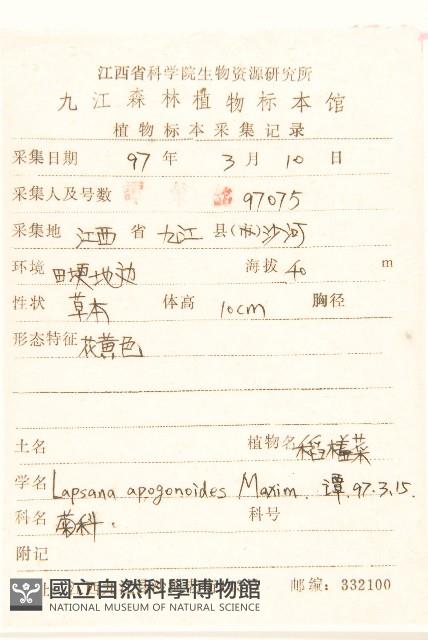 江西省科学院生物资源研究所
九江森林植物标本馆
植物标本采集记录
采集日期 97 年 3 月 10 日
采集人及号数 97075
采集地 江西 省 九江 县(市)沙河
环境 田埂地边 海拔 40 m
性状 草本 体高 10cm 胸径
形态特征 花黄色
土名 植物名 稻槎菜
学名 Lapsana apogonoides Maxim. 谭.97.3.15.
科名 菊科. 科号
附记
國立自然科學博物館 邮编：332100
NATIONAL MUSEUM OF NATURAL SCIENCE